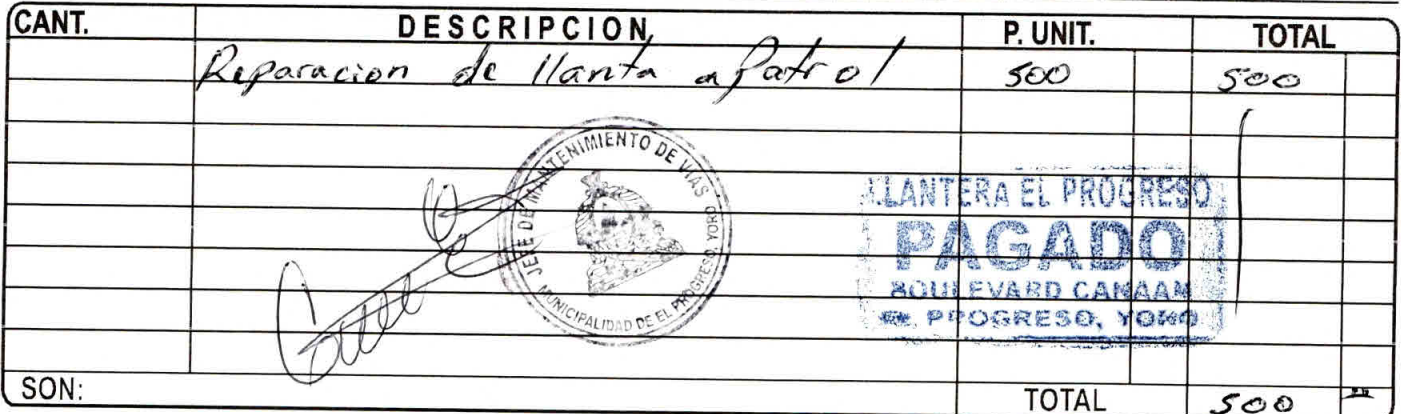 CANT. DESCRIPCION P. UNIT. TOTAL
Reparacion de llanta a Patrol 500 500
JEFE DE MANTENIMIENTO DE VIAS
MUNICIPALIDAD DE EL PROGRESO, YORO
LLANTERA EL PROGRESO
PAGADO
BOULEVARD CANAAN
EL PROGRESO, YORO
SON: TOTAL 500